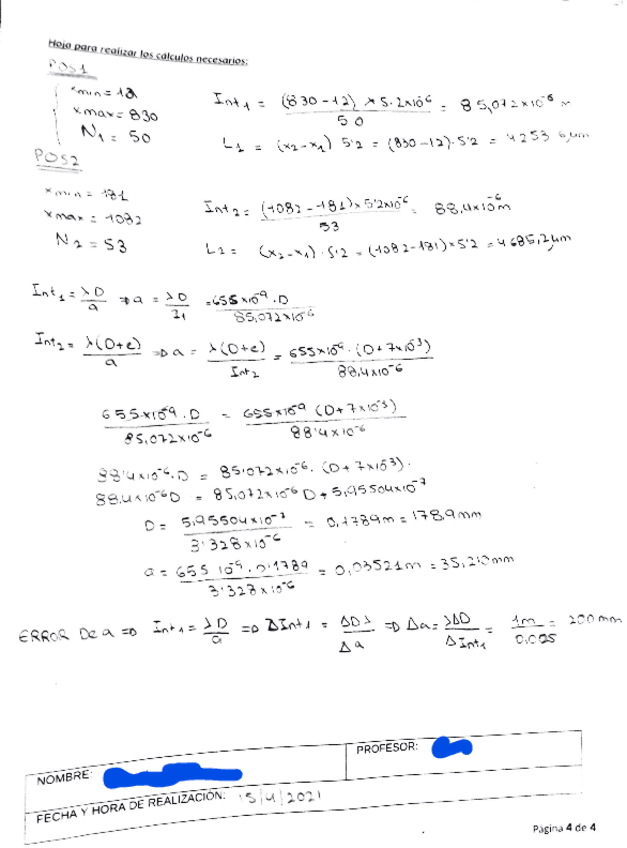 Hoja para realizar los cálculos necesarios:
POS1
xmin = 12
xmax = 830
N1 = 50
Int1 = (830-12) × 5.2×10^-6 / 50 = 85,072×10^-6 m
L1 = (x2-x1) 5'2 = (830-12)·5'2 = 4253'6 μm
POS2
xmin = 181
xmax = 1082
N2 = 53
Int2 = (1082-181)×5'2×10^-6 / 53 = 88,4×10^-6 m
L2 = (x2-x1)·5'2 = (1082-181)×5'2 = 4685,2 μm
Int1 = λD/a ⇒ a = λD/I1 = 655×10^-9·D / 85,072×10^-6
Int2 = λ(D+e)/a ⇒ a = λ(D+e)/Int2 = 655×10^-9·(D+7×10^-3) / 88,4×10^-6
655×10^-9·D / 85,072×10^-6 = 655×10^-9 (D+7×10^-3) / 88'4×10^-6
88'4×10^-6·D = 85'072×10^-6·(D+7×10^-3).
88,4×10^-6 D = 85,072×10^-6 D + 5,95504×10^-7
D = 5,95504×10^-7 / 3'328×10^-6 = 0,1789m = 178,9mm
a = 655 10^-9·0'1789 / 3'328×10^-6 = 0,03521m = 35,210mm
ERROR De a ⇒ Int1 = λD/a ⇒ ΔInt1 = ΔDλ/Δa ⇒ Δa = λΔD/ΔInt1 = 1m/0.005 = 200mm
NOMBRE:
PROFESOR:
FECHA Y HORA DE REALIZACIÓN: 15/4/2021
Página 4 de 4